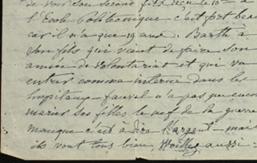 de voir son second fils reçu le 10e à
l'Ecole Polytechnique c'est fort beau
car il n'a que 19 ans. Barth a
son fils qui vient de faire son
année de volontariat et qui va
entrer comme interne dans les
hopitaux. fauvel n'a pas encore
marié ses filles le nerf de la guerre
manque c'est à dire l'argent - mais
ils vont tous bien, Woillez aussi.